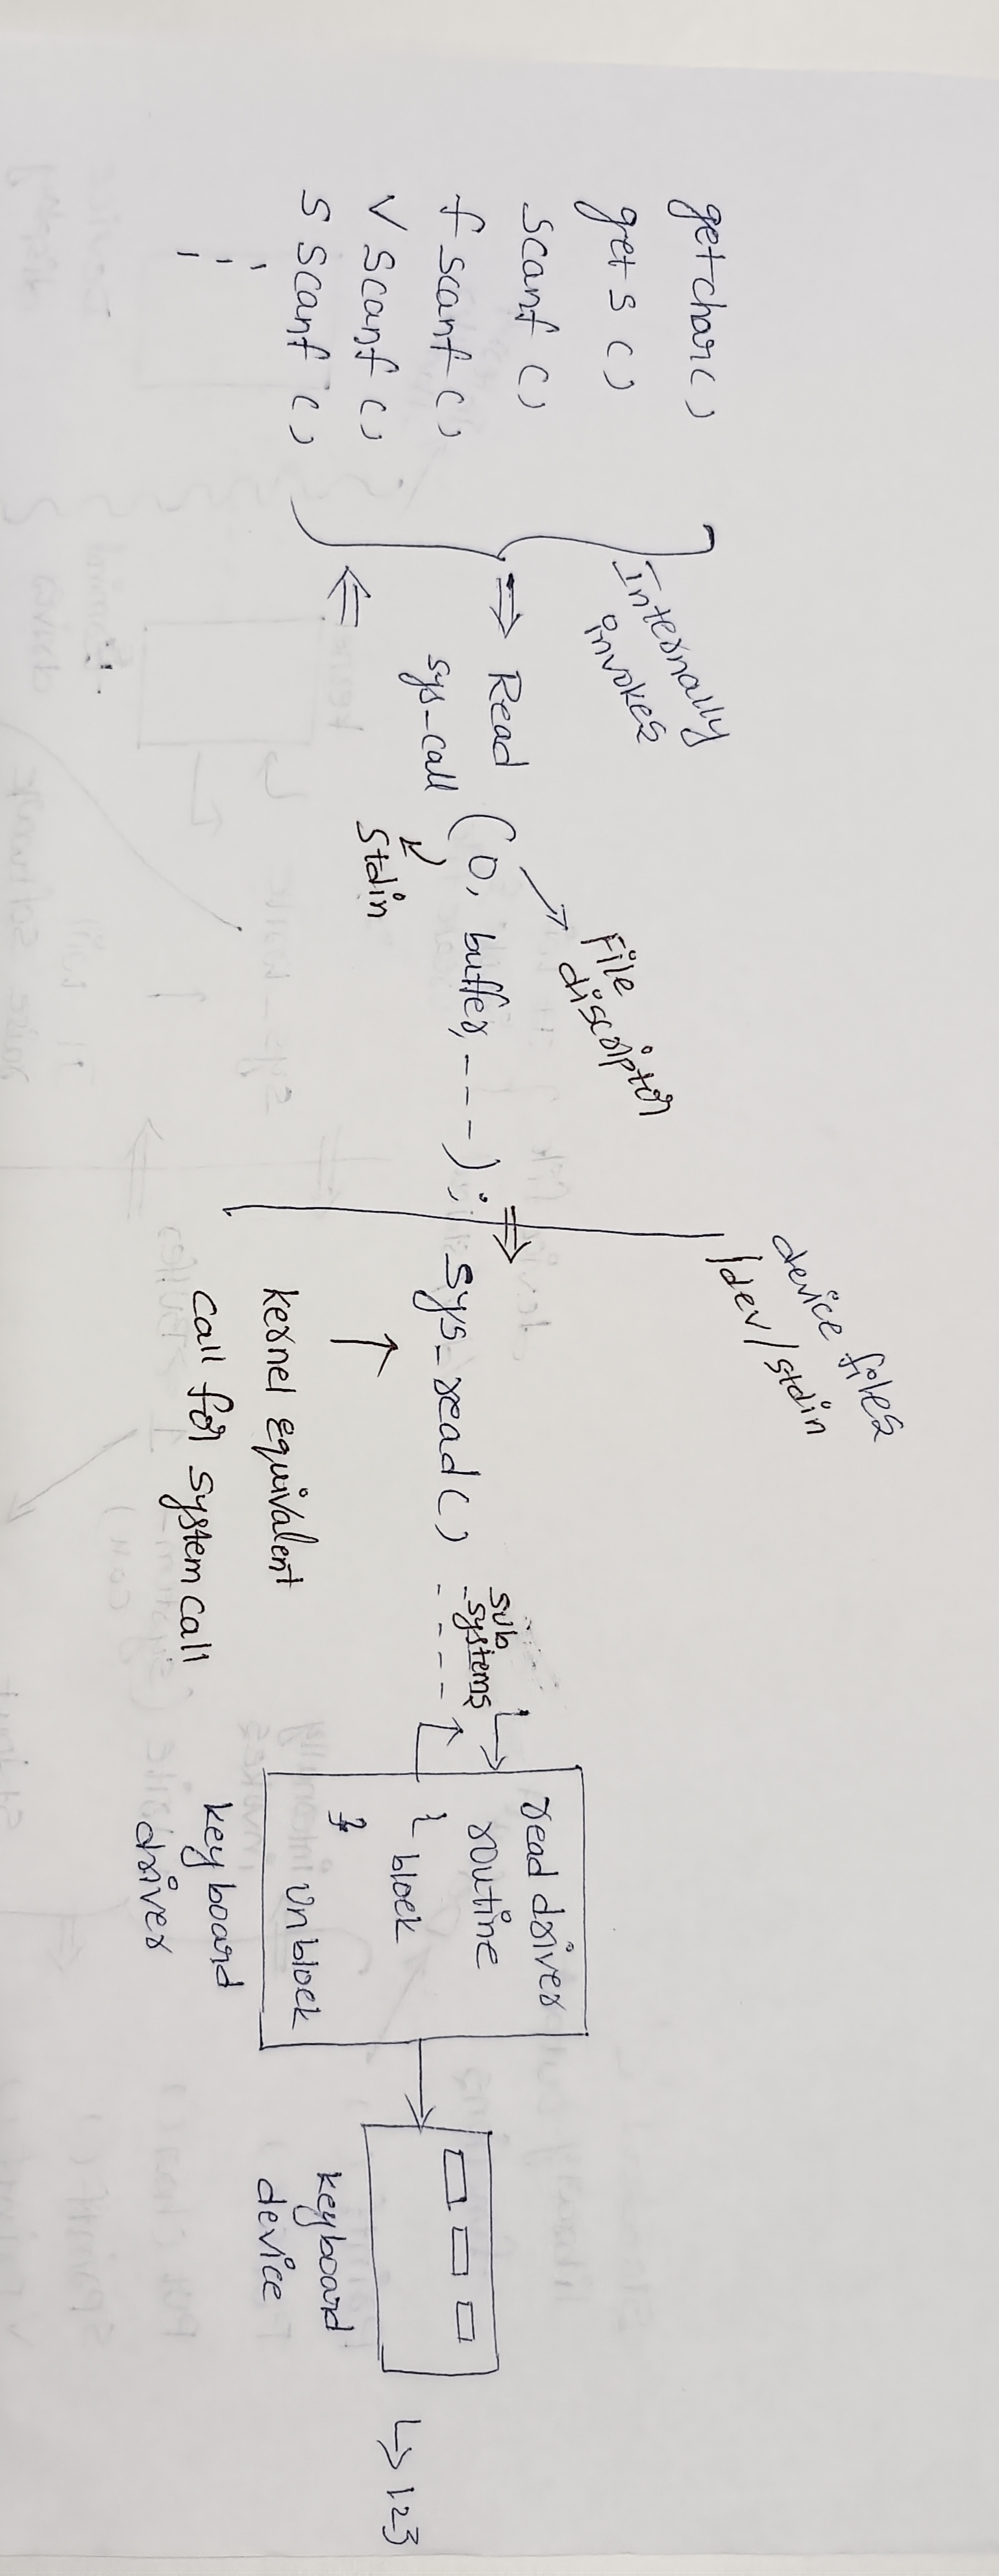 getchar()
gets()
scanf()
fscanf()
vscanf()
sscanf()
Internally
invokes
Read
sys-call
(0, buffer, - - - );
stdin
File
discriptor
device files
/dev/stdin
sys-read()
kernel equivalent
call for system call
sub
systems
read driver
routine
{ block
}
unblock
keyboard
driver
keyboard
device
123